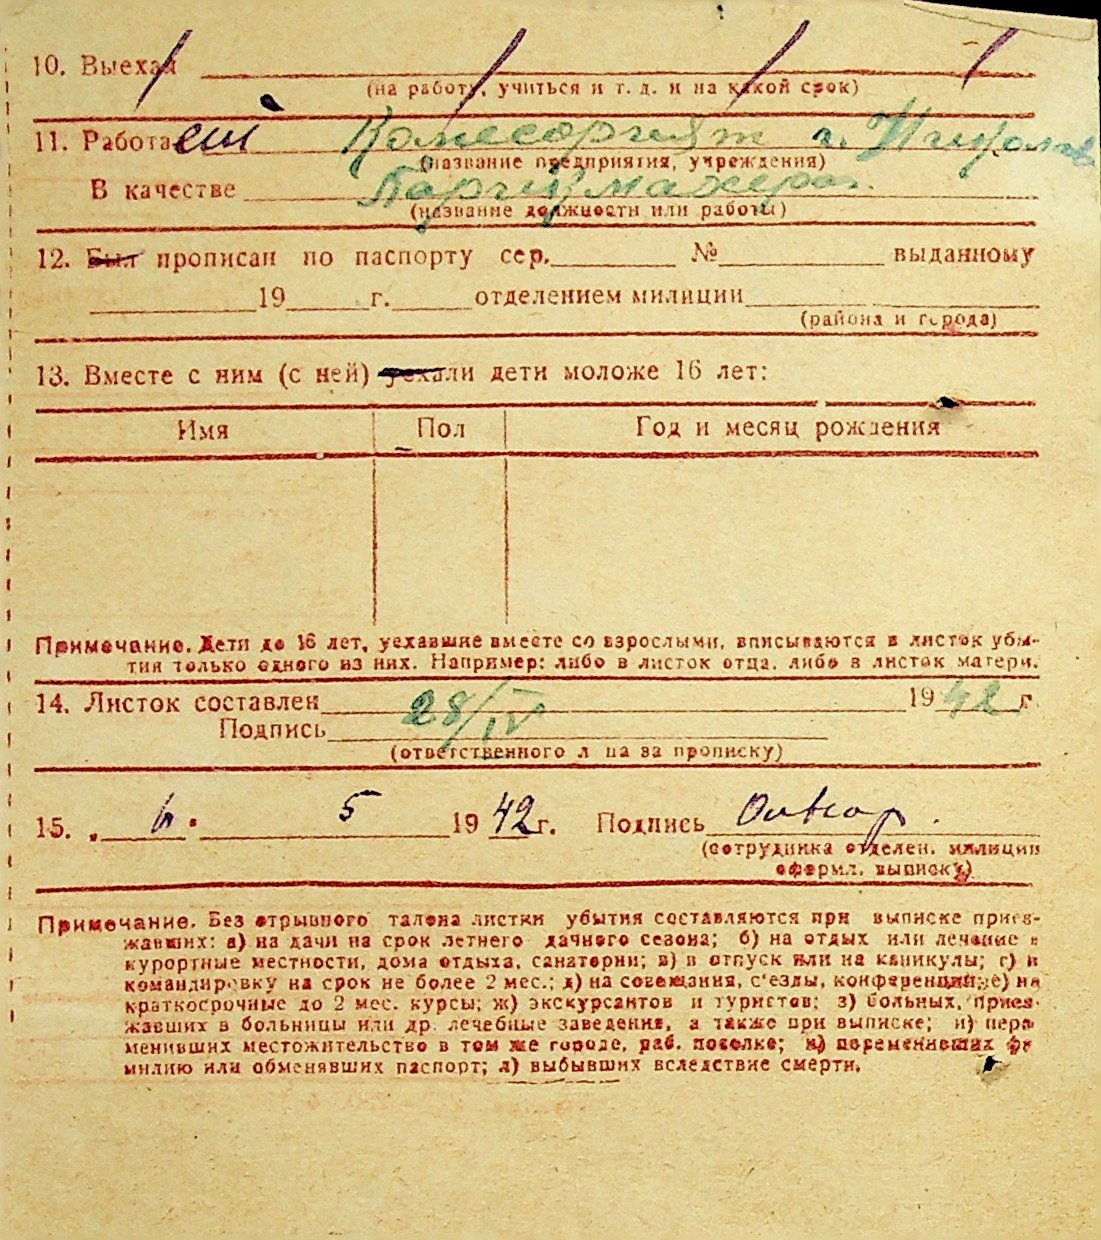 10. Выехал
(на работу, учиться и т. д. и на какой срок)
11. Работа г.
(название предприятия, учреждения)
В качестве
(название должности или работы)
12. Был прописан по паспорту сер. № выданному
19 г. отделением милиции
(района и города)
13. Вместе с ним (с ней) уехали дети моложе 16 лет:
Имя Пол Год и месяц рождения
Примечание. Дети до 16 лет, уехавшие вместе со взрослыми, вписываются в листок убы-
тия только одного из них. Например: либо в листок отца, либо в листок матери.
14. Листок составлен 28/IV 1942 г.
Подпись
(ответственного л ца за прописку)
15. „ 6 " 5 1942 г. Подпись
(сотрудника отделен. милиции
оформл. выписку)
Примечание. Без отрывного талона листки убытия составляются при выписке приез-
жавших: а) на дачи на срок летнего дачного сезона; б) на отдых или лечение в
курортные местности, дома отдыха, санатории; в) в отпуск или на каникулы; г) в
командировку на срок не более 2 мес.; д) на совещания, с'езды, конференции; е) на
краткосрочные до 2 мес. курсы; ж) экскурсантов и туристов; з) больных, приез-
жавших в больницы или др. лечебные заведения, а также при выписке; и) пере
менивших местожительство в том же городе, раб. поселке; к) переменивших фа
милию или обменявших паспорт; л) выбывших вследствие смерти.